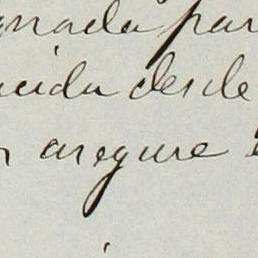 onada par
ucida desde
asegure